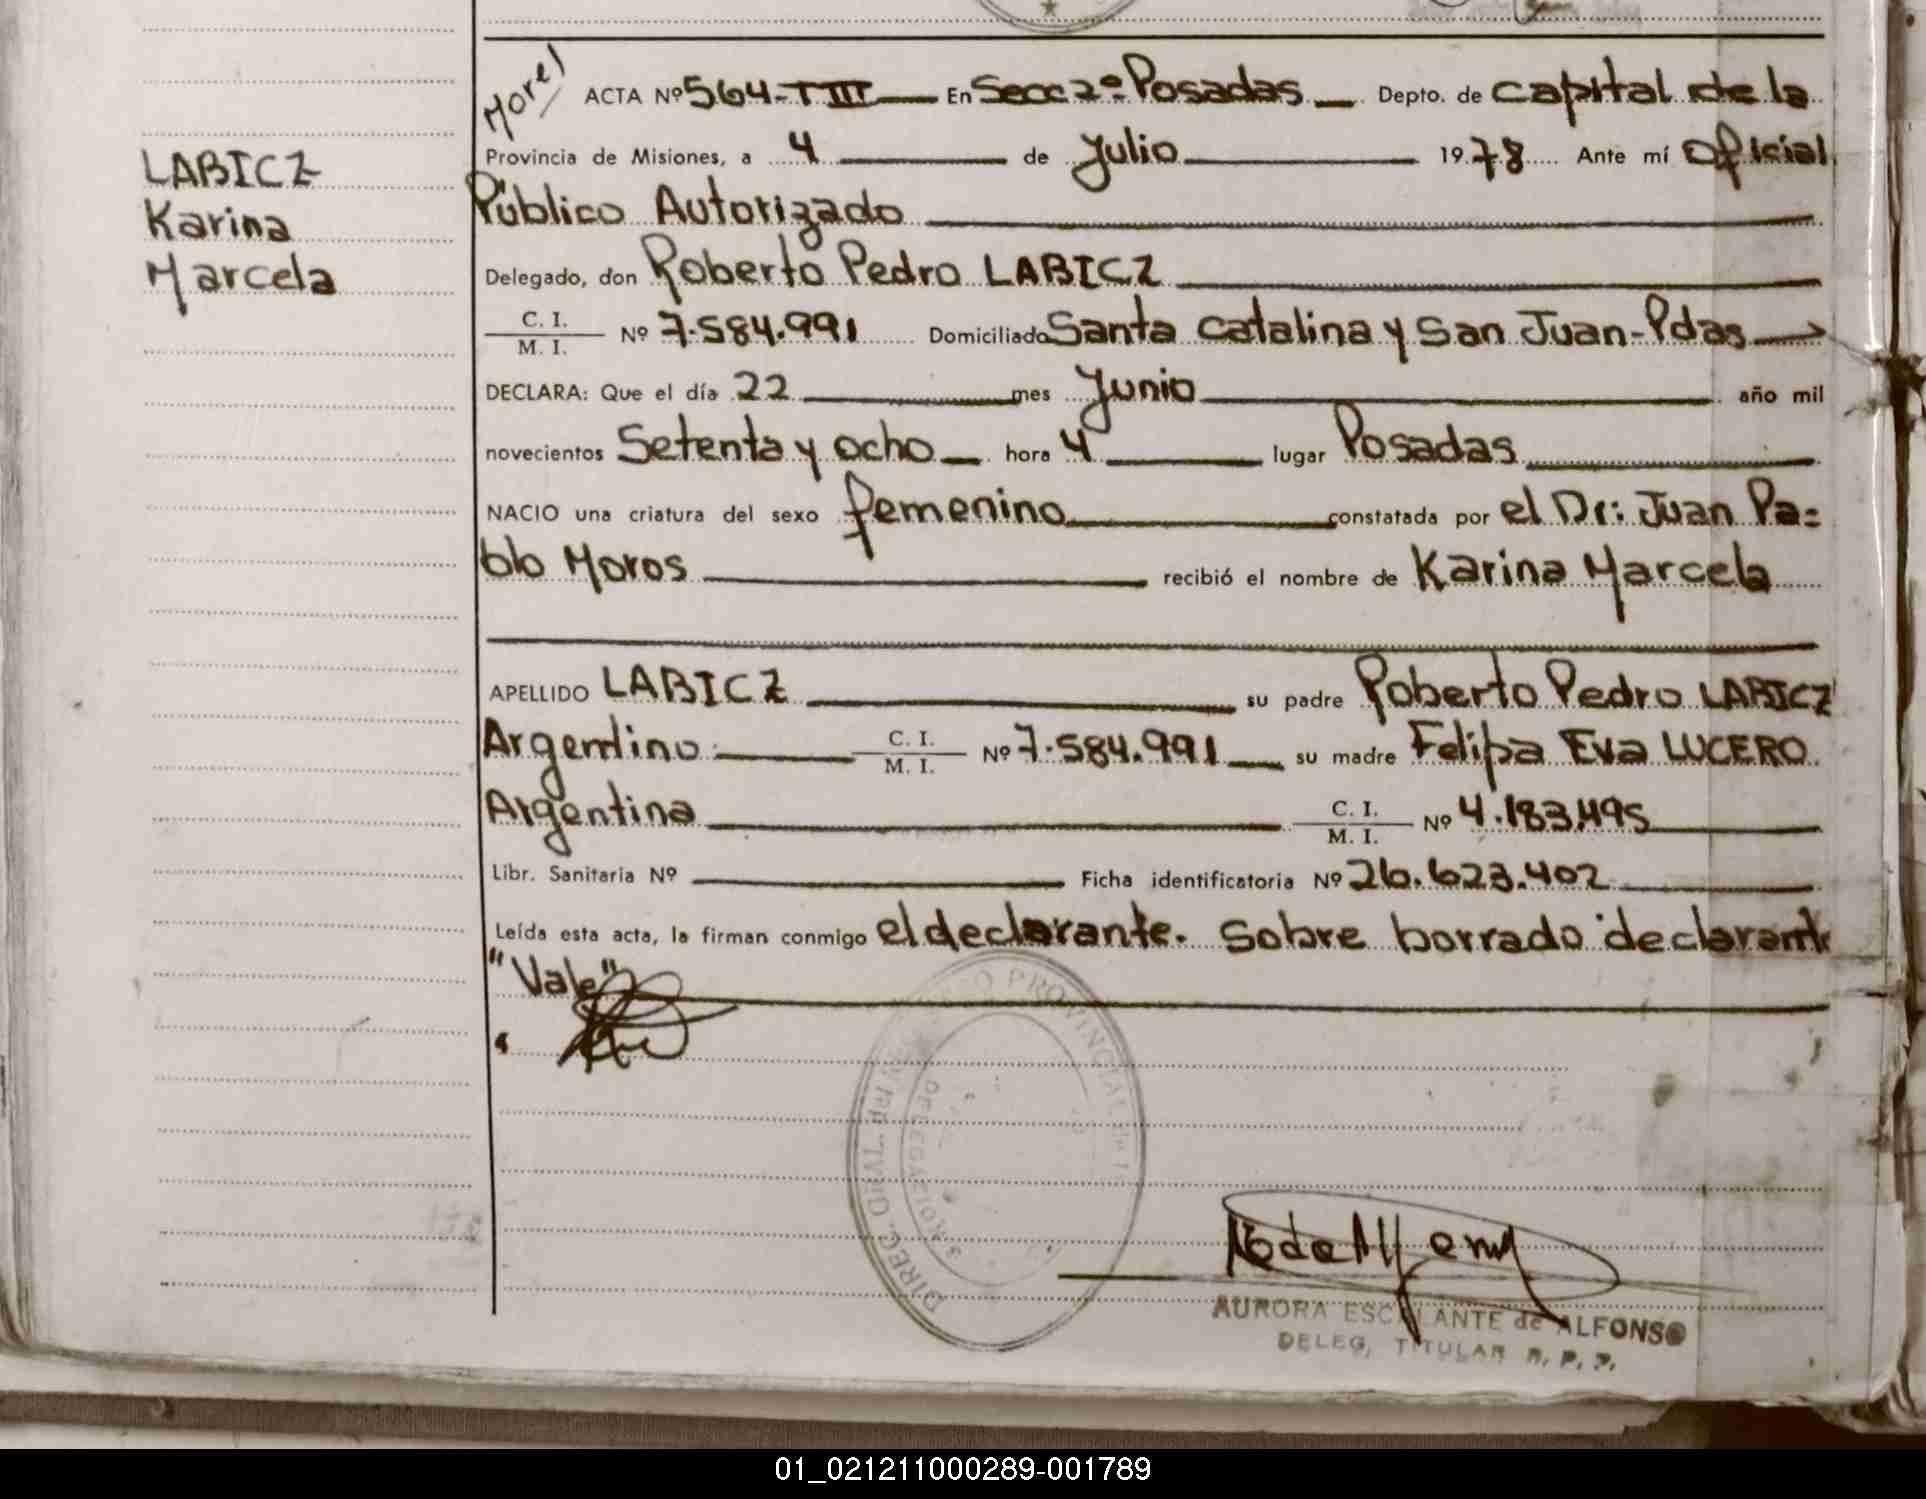 Morel
ACTA Nº 564-TIII En Secc 2º Posadas Depto. de capital de la
Provincia de Misiones, a 4 de Julio 1978 Ante mí Oficial
Público Autorizado
LABICZ
Karina
Marcela
Delegado, don Roberto Pedro LABICZ
C. I.
M. I. Nº 7.584.991 Domiciliado Santa Catalina y San Juan-Pdas
DECLARA: Que el día 22 mes Junio año mil
novecientos Setenta y ocho hora 4 lugar Posadas
NACIO una criatura del sexo femenino constatada por el Dr: Juan Pa=
blo Moros recibió el nombre de Karina Marcela
APELLIDO LABICZ su padre Roberto Pedro LABICZ
Argentino C. I.
M. I. Nº 7.584.991 su madre Felipa Eva LUCERO
Argentina C. I.
M. I. Nº 4.183.495
Libr. Sanitaria Nº Ficha identificatoria Nº 26.623.402
Leída esta acta, la firman conmigo el declarante. Sobre borrado "declarante
"Vale"
PROVINCIAL
DIREC. CIVIL
AURORA ESCALANTE de ALFONSO
DELEG, TITULAR R. P. P.
01_021211000289-001789